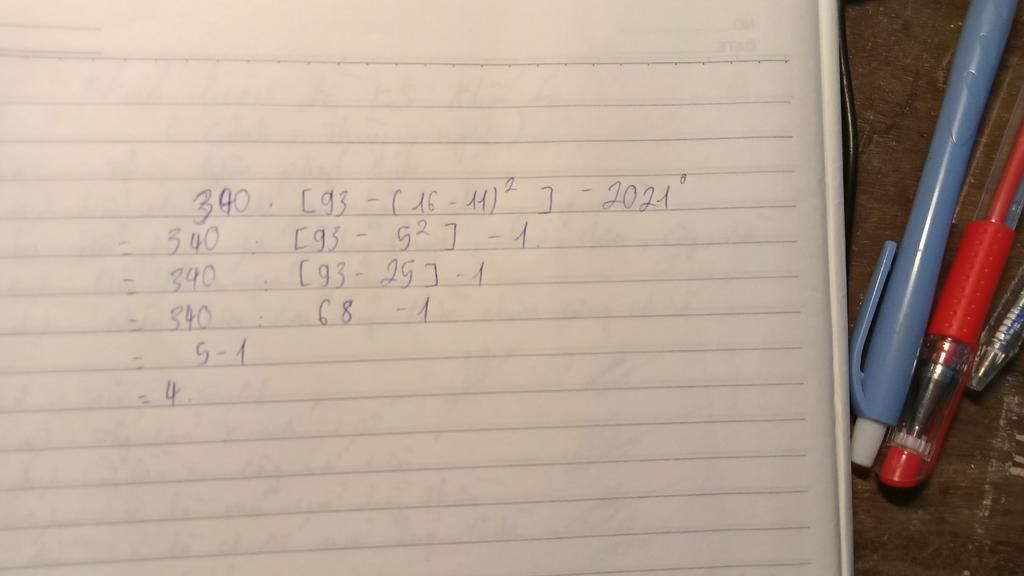 NO.
DATE
340 : [93 - (16 - 11)² ] - 2021⁰
= 340 : [93 - 5² ] - 1.
= 340 : [93 - 25] - 1
= 340 : 68 - 1
= 5 - 1
= 4.